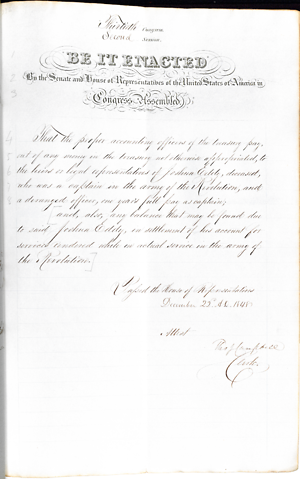 Thirtieth Congress
Second Session
BE IT ENACTED
By the Senate and House of Representatives of the United States of America in
Congress Assembled,
That the proper accounting officers of the treasury pay,
out of any money in the treasury not otherwise appropriated, to
the heirs or legal representatives of Joshua Eddy, deceased,
who was a captain in the army of the Revolution, and
a deranged officer, one year's full pay as captain;
[and, also, any balance that may be found due
to said Joshua Eddy, on settlement of his account for
services rendered while in actual service in the army of
the Revolution.]
Passed the House of Representatives
December 29th A.D. 1848
Attest
Clerk.